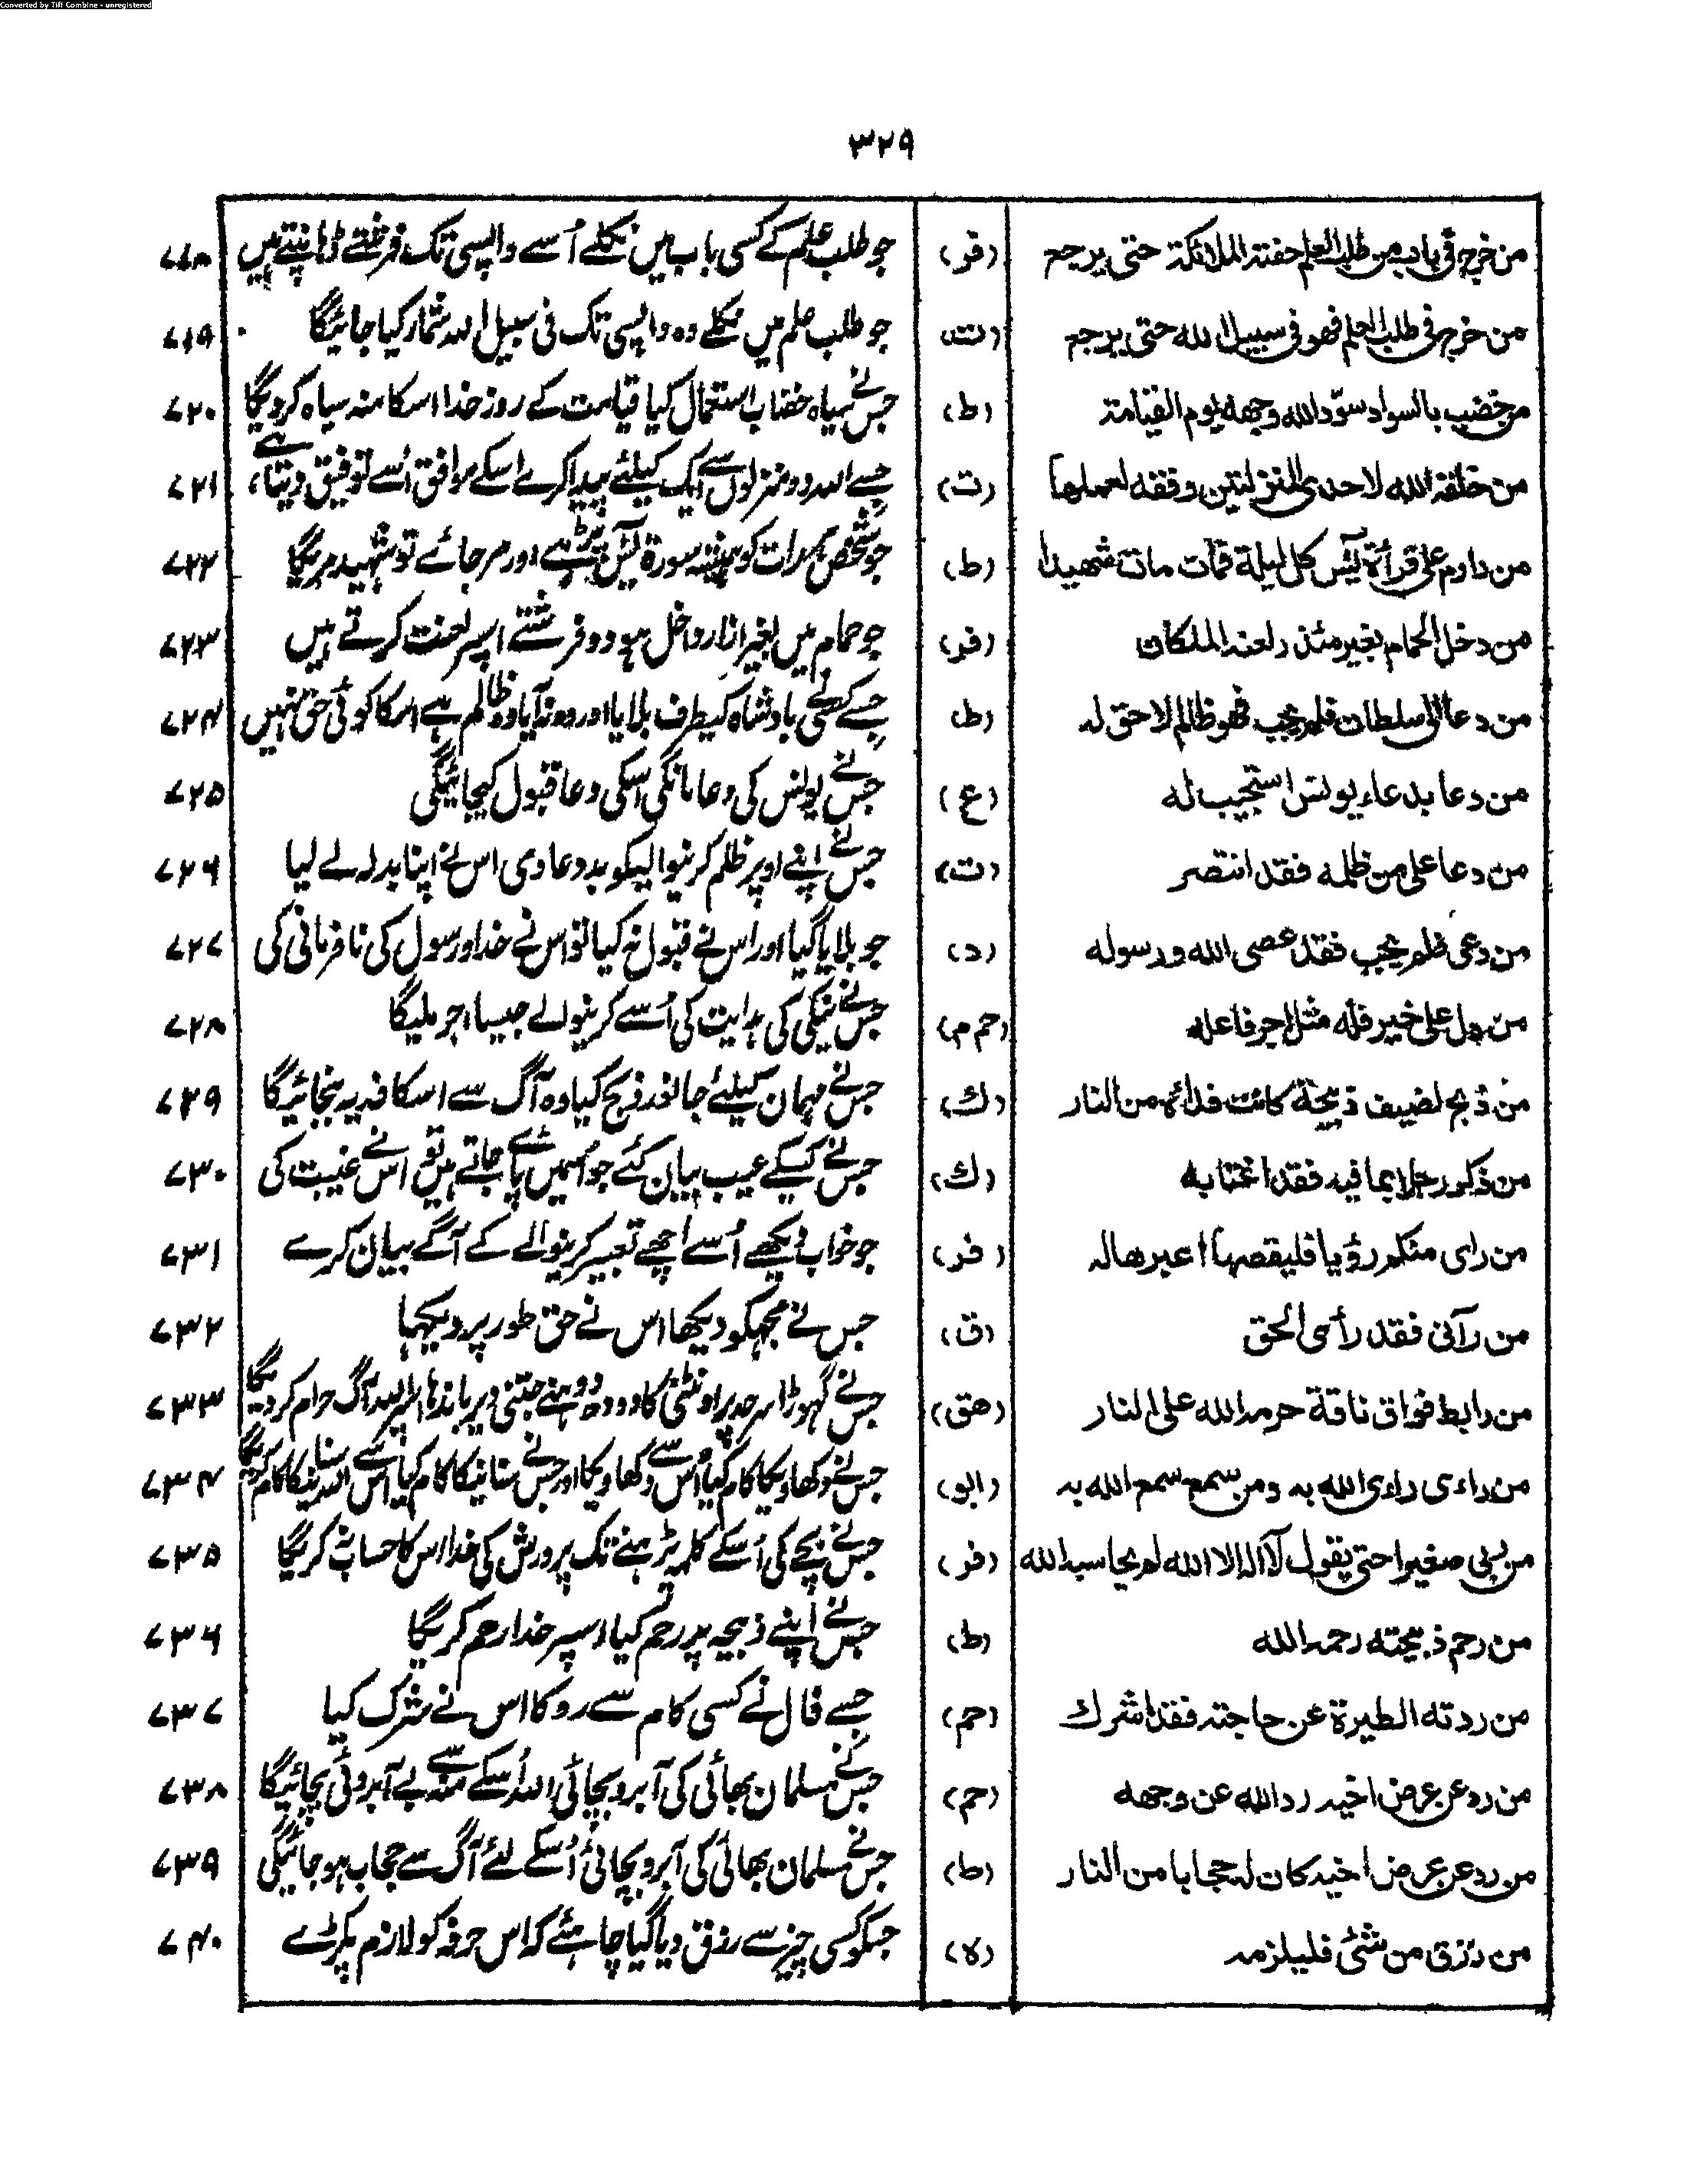 Converted by Tiff Combine - unregistered
۳۲۹
من خرج فی باب من طلب العلم حفته الملائكة حتی یرجع (فر) جو طلب علم کے کسی باب میں نکلے اُسے واپسی تک فرشتے ڈہانپتے ہیں ۷۱۸
من خرج فی طلب العلم فهو فی سبیل الله حتی یرجع (ت) جو طلب علم میں نکلے وہ واپسی تک فی سبیل اللہ شمار کیا جائیگا ۷۱۹
من خضب بالسواد سوّد الله وجهه یوم القیامة (ط) جس نے سیاہ خضاب استعمال کیا قیامت کے روز خدا اسکا منہ سیاہ کردیگا ۷۲۰
من خلقه الله لاحدی المنزلتین وفقه لعملها (ت) جسے اللہ دو منزلوں سے ایک کیلئے پیدا کرے اسکے موافق اُسے توفیق دیتا ہے ۷۲۱
من داوم علی قرأة یٰس كل لیلة فمات مات شهیدا (ط) جو شخص ہر رات کو ہمیشہ سورۃ یٰس پڑہے اور مر جائے تو شہید مریگا ۷۲۲
من دخل الحمام بغیر مئزر لعنه الملكان (فر) جو حمام میں بغیر ازار داخل ہو دو فرشتے اسپر لعنت کرتے ہیں ۷۲۳
من دعا الی سلطان فلم یجب فهو ظالم لا حق له (ط) جسے کسی بادشاہ کیطرف بلایا اور وہ نہ آیا وہ ظالم ہے اسکا کوئی حق نہیں ۷۲۴
من دعا بدعاء یونس استجیب له (ع) جس نے یونس کی دعا مانگی اسکی دعا قبول کیجائیگی ۷۲۵
من دعا علی من ظلمه فقد انتصر (ت) جس نے اپنے اوپر ظلم کرنیوالیکو بد دعا دی اس نے اپنا بدلہ لے لیا ۷۲۶
من دعی فلم یجب فقد عصی الله ورسوله (د) جو بلایا گیا اور اس نے قبول نہ کیا تو اس نے خدا اور رسول کی نافرمانی کی ۷۲۷
من دل علی خیر فله مثل اجر فاعله (حم م) جس نے نیکی کی ہدایت کی اُسے کرنیوالے جیسا اجر ملیگا ۷۲۸
من ذبح لضیف ذبیحة كانت فداءه من النار (ك) جس نے مہمان کیلئے جانور ذبح کیا وہ آگ سے اسکا فدیہ بنجائیگا ۷۲۹
من ذكر رجلا بما فیه فقد اغتابه (ك) جس نے کسیکے عیب بیان کئے جو اُسمیں پائے جاتے ہیں تو اس نے غیبت کی ۷۳۰
من رای منكم رؤیا فلیقصها اعبرها له (فر) جو خواب دیکھے اُسے اچھے تعبیر کرنیوالے کے آگے بیان کرے ۷۳۱
من رآنی فقد رأی الحق (ق) جس نے مجہکو دیکھا اس نے حق طور پر دیکہا ۷۳۲
من رابط فواق ناقة حرمه الله علی النار (هق) جس نے گہوڑا سرحد پر اونٹنی کا دودھ دوہنے جتنی دیر باندہا اسپر اللہ آگ حرام کردیگا ۷۳۳
من راءی راءی الله به ومن سمع سمع الله به (ابو) جس نے دکھاویکا کام کیا اُس سے دکھاویکا اور جس نے سنانیکا کام کیا اس سے اللہ سنانیکا کام کریگا ۷۳۴
من ربی صغیرا حتی یقول لا اله الا الله لم یحاسبه الله (فر) جس نے بچے کی اُسکے کلمہ پڑہنے تک پرورش کی خدا اس کا حساب نہ کریگا ۷۳۵
من رحم ذبیحته رحمه الله (ط) جس نے اپنے ذبیحہ پر رحم کیا اسپر خدا رحم کریگا ۷۳۶
من ردته الطیرة عن حاجته فقد اشرك (حم) جسے فال نے کسی کام سے روکا اس نے شرک کیا ۷۳۷
من رد عن عرض اخیه رد الله عن وجهه (حم) جس نے مسلمان بھائی کی آبرو بچائی اللہ اُسکے منہ سے بے آبروئی بچائیگا ۷۳۸
من رد عن عرض اخیه كان له حجابا من النار (ط) جس نے مسلمان بھائی کی آبرو بچائی اُسکے لئے آگ سے حجاب ہو جائیگی ۷۳۹
من رزق من شئ فلیلزمه (ہ) جسکو کسی چیز سے رزق دیا گیا چاہئے کہ اس حرفہ کو لازم پکڑے ۷۴۰